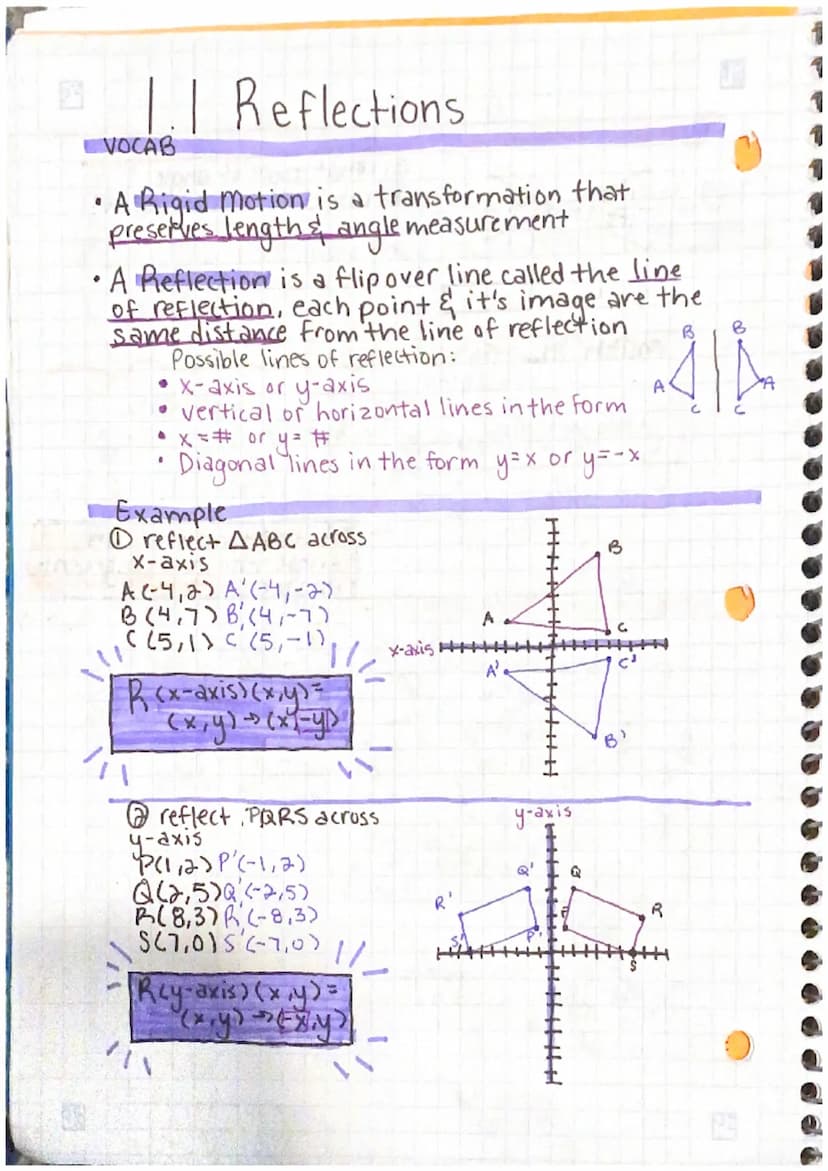 1.1 Reflections
VOCAB
• A Rigid Motion is a transformation that
preserves length & angle measurement
• A Reflection is a flip over line called the line
of reflection, each point & it's image are the
same distance from the line of reflection
Possible lines of reflection:
• x-axis or y-axis
• vertical or horizontal lines in the form
• x = # or y = #
• Diagonal lines in the form y=x or y=-x
B B
A A
C C
Example
① reflect △ABC across
x-axis
A(-4,2) A'(-4,-2)
B(4,7) B'(4,-7)
C(5,1) C'(5,-1)
R(x-axis)(x,y)=
(x,y)→(x,-y)
B
A
C
x-axis
A' C'
B'
② reflect PQRS across
y-axis
P(1,2) P'(-1,2)
Q(2,5) Q'(-2,5)
R(8,3) R'(-8,3)
S(7,0) S'(-7,0)
R(y-axis)(x,y)=
(x,y)→(-x,y)
y-axis
Q' Q
R' R
P' P
S' S